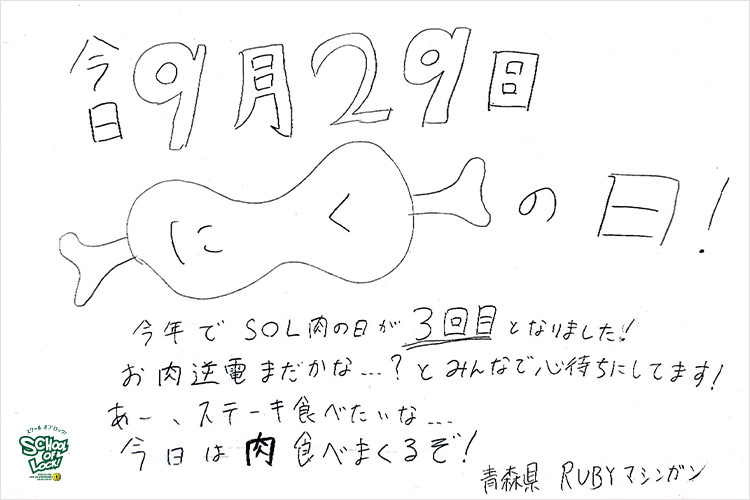 今日9月29日
にくの日！
今年でSOL肉の日が3回目となりました！
お肉逆電まだかな…？とみんなで心待ちにしてます！
あー、ステーキ食べたいな…
今日は肉食べまくるぞ！
青森県 RUBYマシンガン
スクール オブ ロック!
SCHOOL OF LOCK!